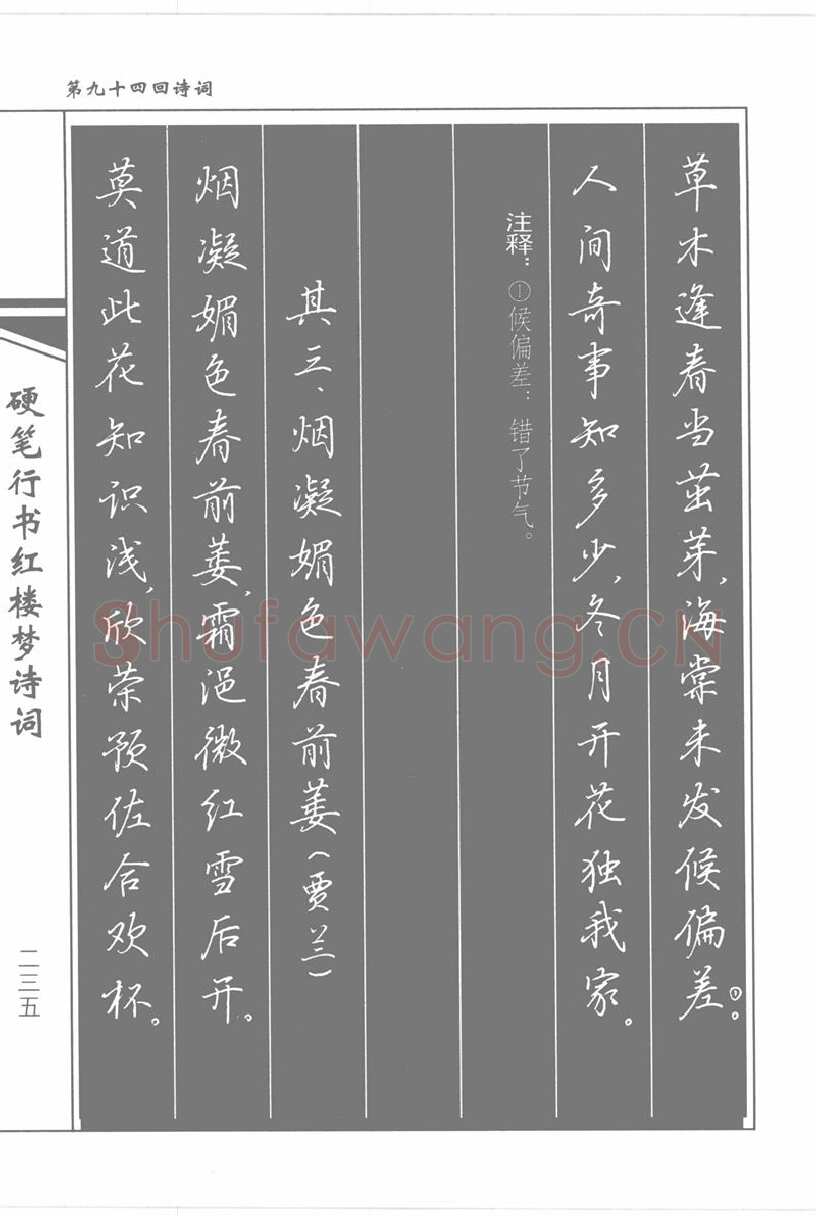 第九十四回诗词
草木逢春当茁芽，海棠未发候偏差①。
人间奇事知多少，冬月开花独我家。
注释：①候偏差：错了节气。
其三、烟凝媚色春前萎（贾兰）
烟凝媚色春前萎，霜浥微红雪后开。
莫道此花知识浅，欣荣预佐合欢杯。
硬笔行书红楼梦诗词
二三五
Shufawang.CN